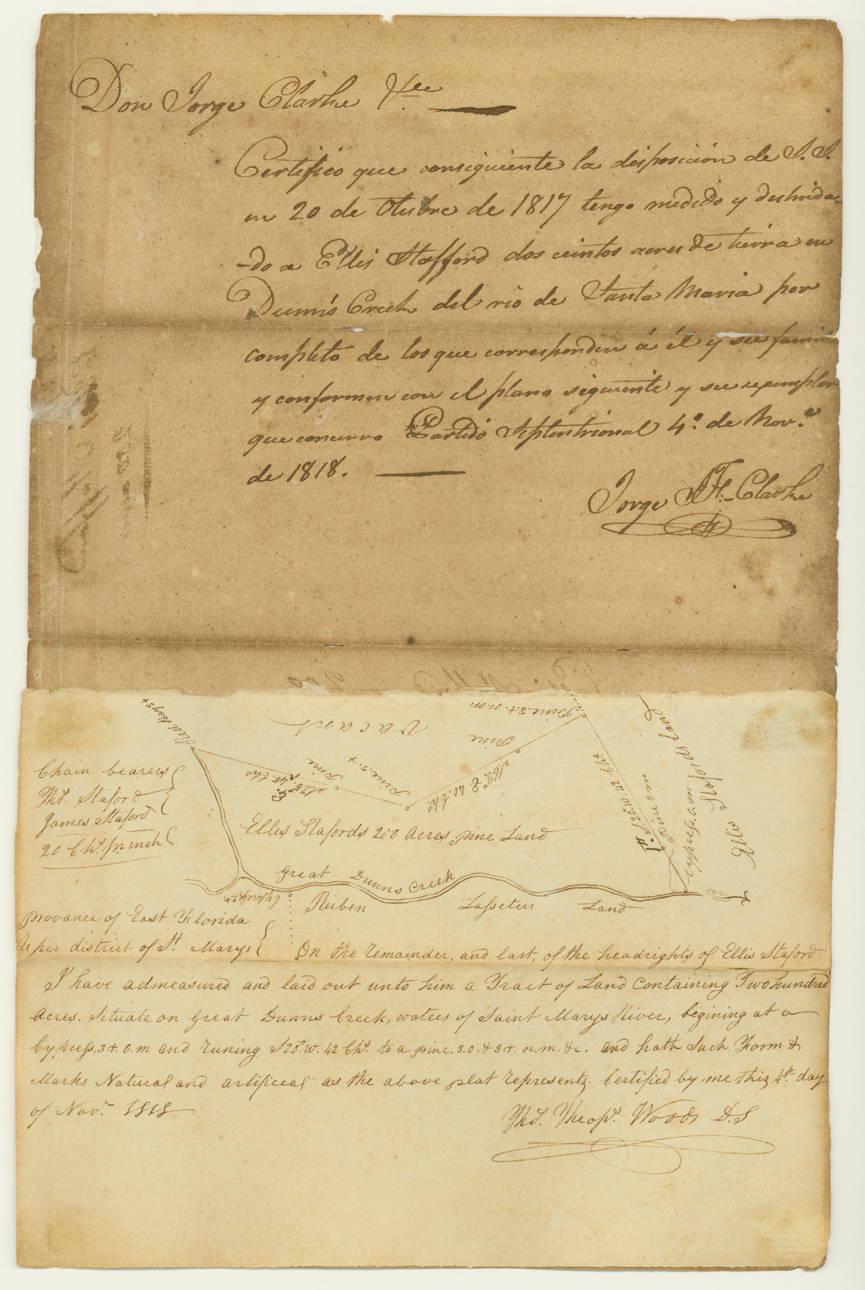 Don Jorge Clarke &ee
Certifico que consiguiente la disposición de S.S.
en 20 de Otubre de 1817 tengo medido y deslinda
-do a Ellis Stafford dos cientos acres de tierra en
Dunn's Creek del rio de Santa Maria por
completo de los que corresponden á él y su famil
y conformen con el plano siguiente y su exemplar
que conservo Partido Septentrional 4º. de Nov.e
de 1818.
Jorge J. F. Clarke
Red bay 3+
Vacant
Pine 3+ n.m
Pine
Pine 3+
Pine
Chain bearers
Thos. Staford
James Staford
20 Chs. pr. inch
Ellis Stafords 200 Acres pine Land
Ellis Stafords Land
Great Dunns Creek
Cypress 3+
Ruben Lasseter Land
Provance of East Florida
Uper district of St. Marys
On the remainder, and last, of the headrights of Ellis Staford
I have admeasured and laid out unto him a Tract of Land Containing Two hundred
Acres. Situate on Great Dunns Creek, waters of Saint Marys River, begining at a
Cypress, 3+ o.m. and runing S20° W. 42 Chs. to a pine. 3.0. & 3+ n.m. &c. and hath Such Form &
Marks Natural and artificeal as the above plat represents. Certified by me this 4th. day
of Novr. 1818
Thos. Theops. Woods D.S